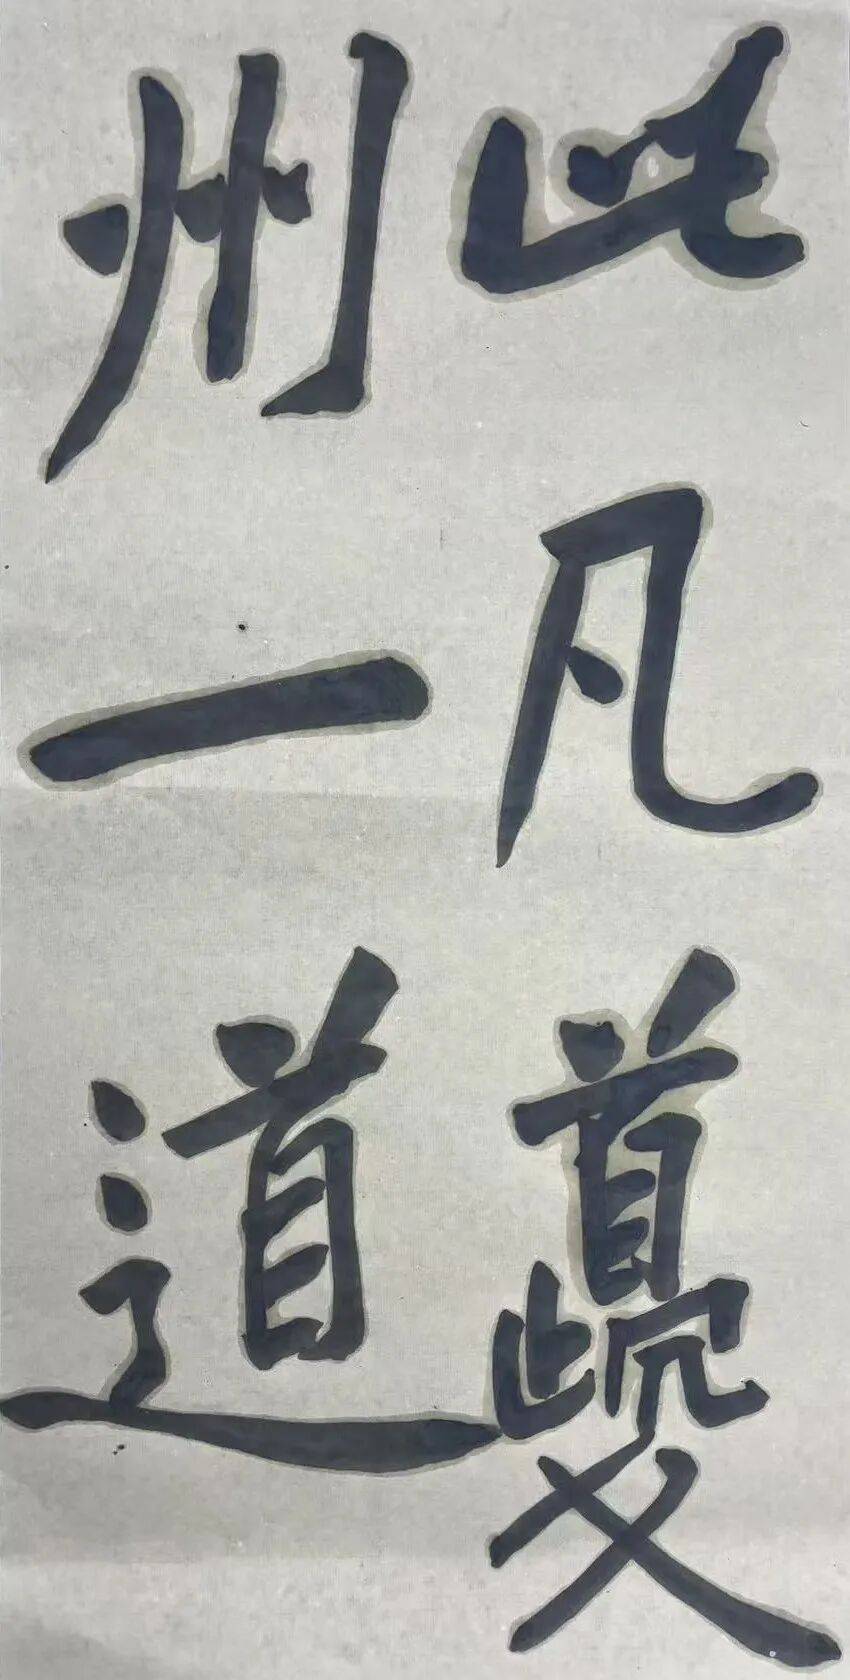 此凡夔
州一道